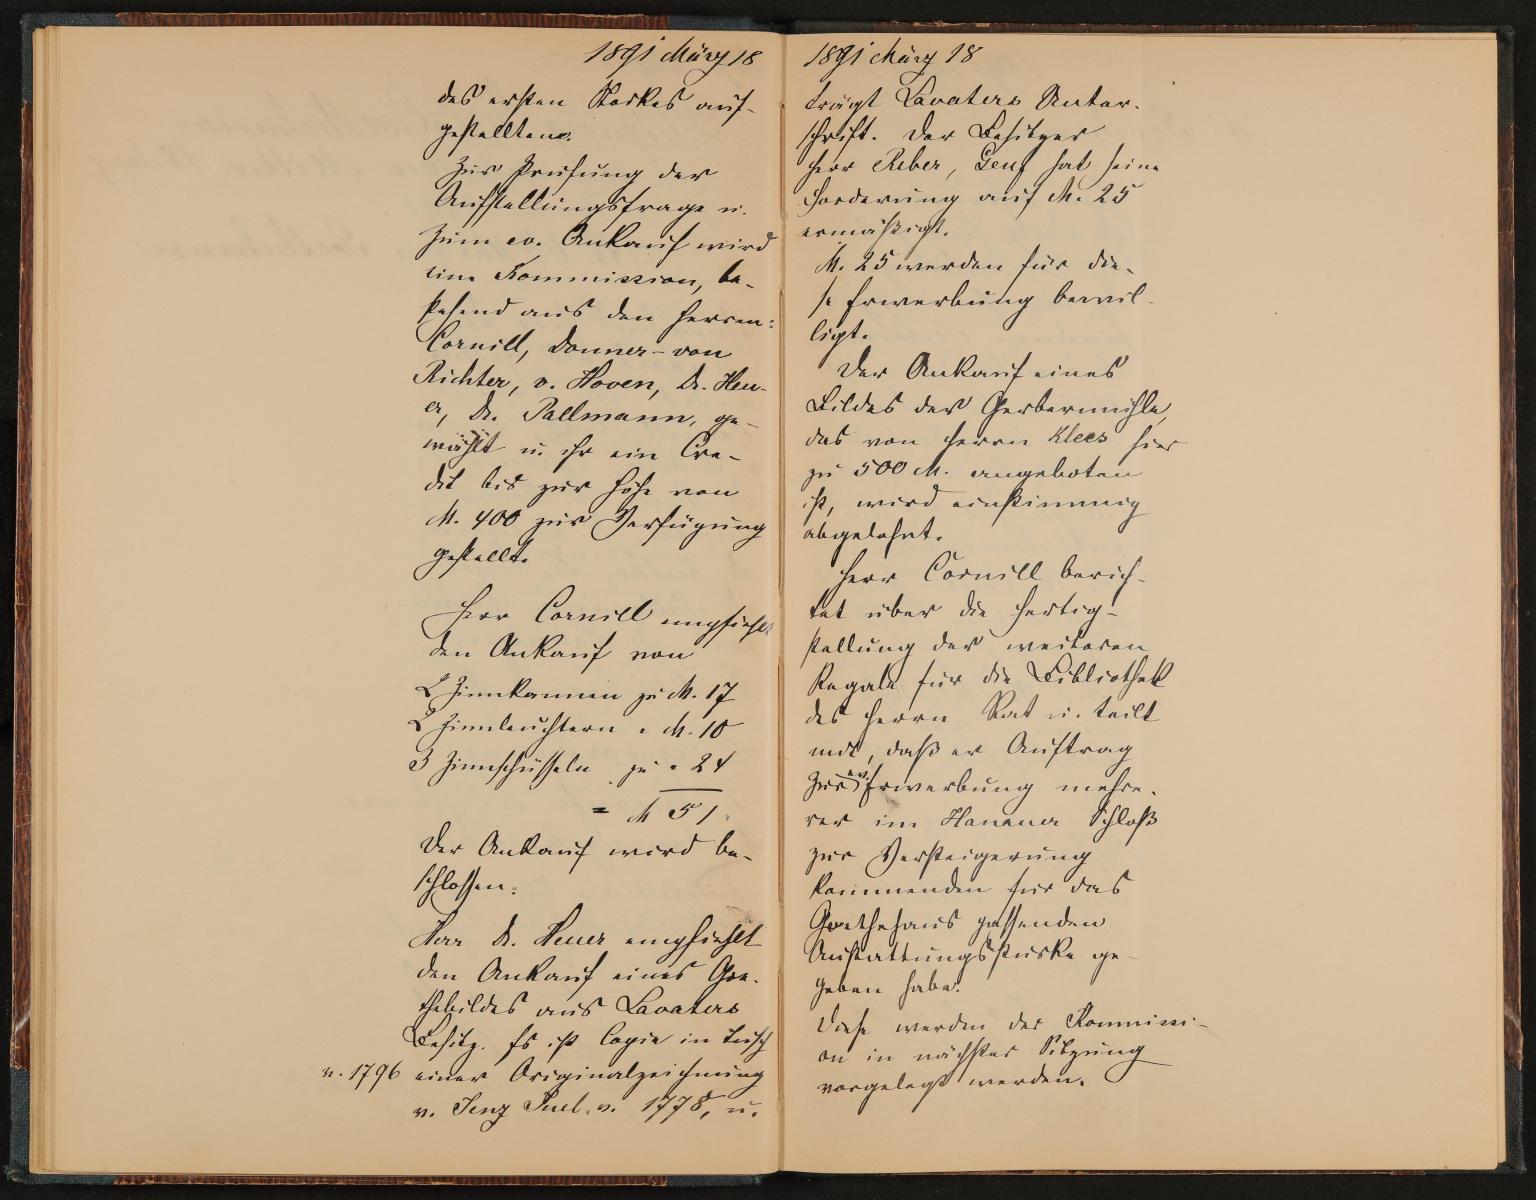 1891 März 18
des ersten Stockes auf-
gestellten.
Zur Prüfung der
Aufstellungsfrage u.
zum ev. Ankauf wird
eine Kommission, be-
stehend aus den Herren:
Cornill, Donner-von
Richter, v. Hoven, Dr. Heu-
er, Dr. Pallmann, ge-
wählt u. ihr ein Cre-
dit bis zur Höhe von
M. 400 zur Verfügung
gestellt.
Herr Cornill empfiehlt
den Ankauf von
2 Zinnkannen zu M. 17
2 Zinnleuchtern " M. 10
3 Zinnschüsseln zu " 24
= M 51.
Der Ankauf wird be-
schlossen.
Herr Dr. Heuer empfiehlt
den Ankauf eines Goe-
thebildes aus Lavaters
Besitz. Es ist Copie in Tusch
v. 1796 einer Originalzeichnung
v. Jenz Juel. v. 1778, u.
1891 März 18
trägt Lavaters Unter-
schrift. Der Besitzer
Herr Reber, Genf hat seine
Forderung auf M. 25
ermäßigt.
M. 25 werden für die-
se Erwerbung bewil-
ligt.
Der Ankauf eines
Bildes der Gerbermühle,
das von Herrn Klees hier
zu 500 M. angeboten
ist, wird einstimmig
abgelehnt.
Herr Cornill berich-
tet über die Fertig-
stellung der weiteren
Regale für die Bibliothek
des Herrn Rat u. teilt
mit, daß er Auftrag
zur ev. Erwerbung mehre-
rer im Hanauer Schloß
zur Versteigerung
kommenden für das
Goethehaus passenden
Ausstattungsstücke ge-
geben habe.
Diese werden der Kommissi-
on in nächster Sitzung
vorgelegt werden.